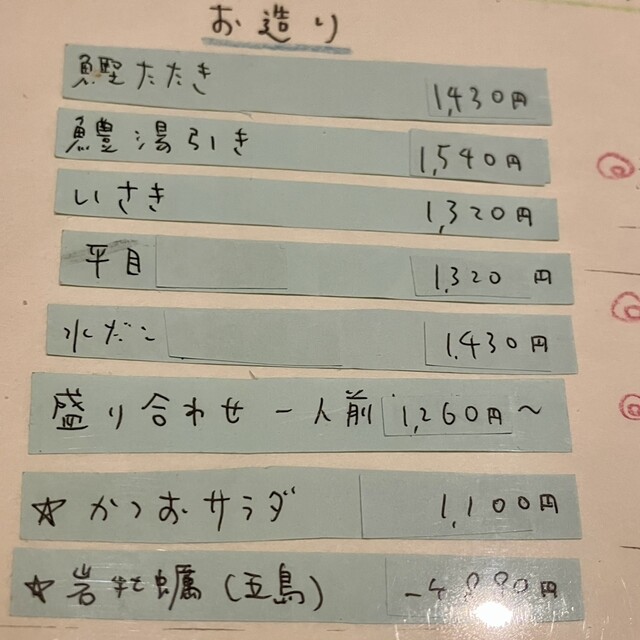 お造り
鰹たたき 1,430円
鱧湯引き 1,540円
いさき 1,320円
平目 1,320円
水だこ 1,430円
盛り合わせ 一人前 1,260円〜
☆かつおサラダ 1,100円
☆岩牡蠣(五島) 円